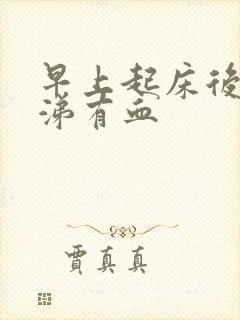 早上起床後
涕有血
賈真真